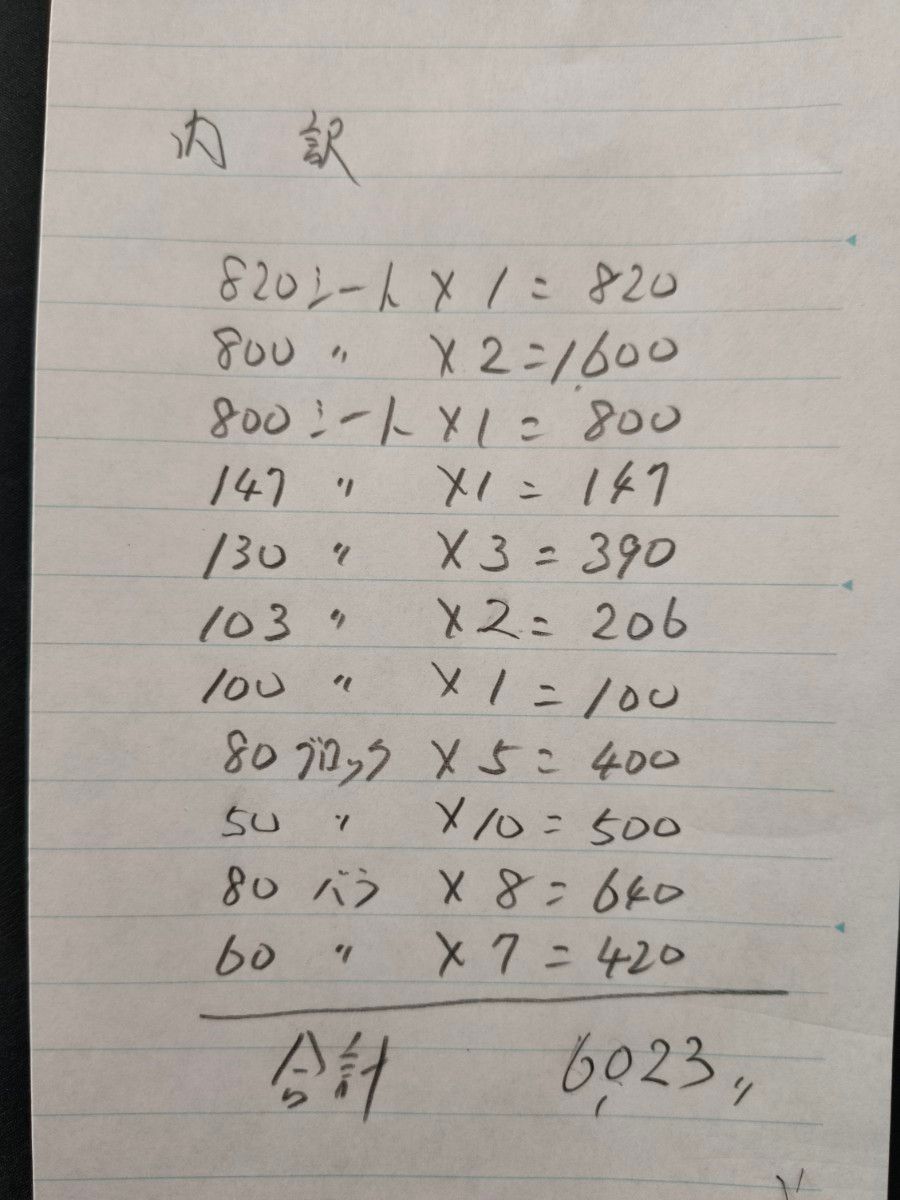 内訳
820シート × 1 = 820
800 〃 × 2 = 1,600
800シート × 1 = 800
147 〃 × 1 = 147
130 〃 × 3 = 390
103 〃 × 2 = 206
100 〃 × 1 = 100
80ブロック × 5 = 400
50 〃 × 10 = 500
80 バラ × 8 = 640
60 〃 × 7 = 420
合計 6,023〃